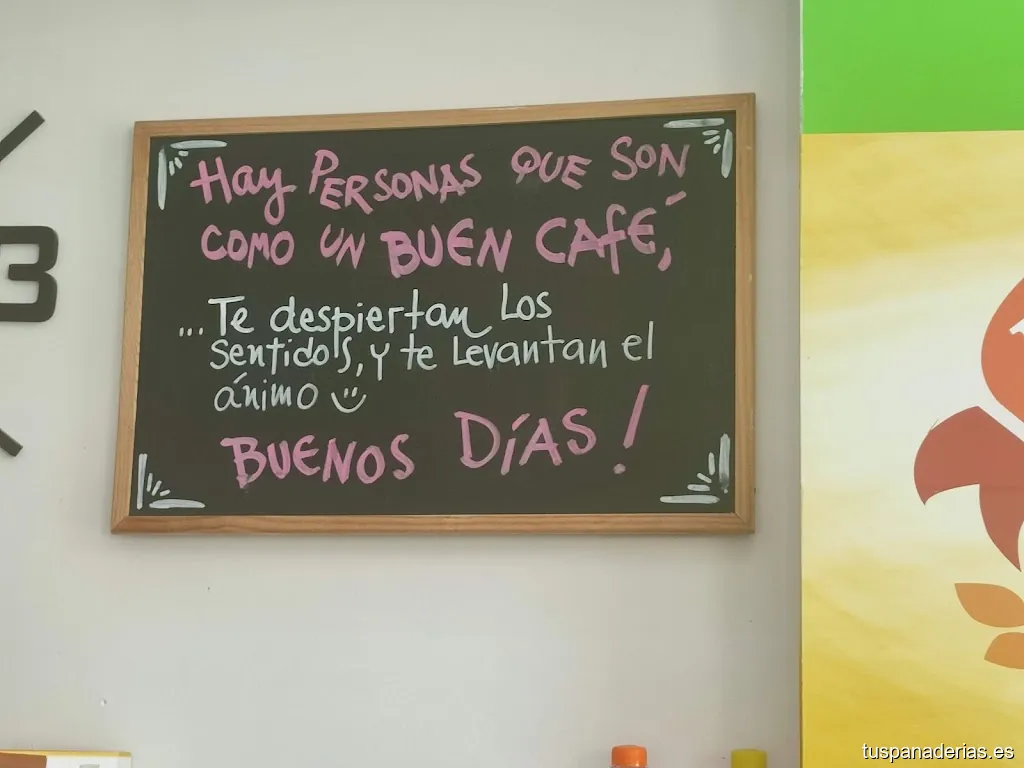 3
Hay PERSONAS QUE SON
COMO UN BUEN CAFÉ,
...Te despiertan Los
sentidos, y te Levantan el
ánimo
BUENOS DÍAS!
tuspanaderias.es